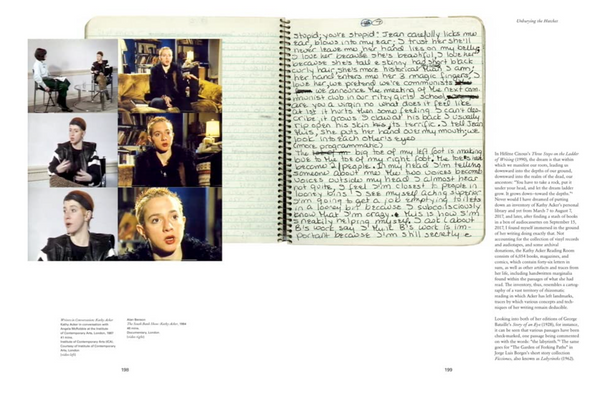 Unburying the Bitches
stupid; you're stupid. Jean carefully licks my
ear, blows into my ear; I trust her she'll
never leave me her hand lies on my belly
I love her because she's beautiful, I love her
because she's tall & skinny had short black
curly hair, she's more historical than I am;
her hand enters me her 3 magic fingers, I
love her, we pretend we're communists
we announce the meeting of the next com
munist club in our ritzy girls' school
are you a virgin no what does it feel like
at 1st it hurts then some feeling I can't des-
cribe it grows I claw at his back I usually
rip open his skin but its terrific. I tell Jean
this, she puts her hand over my mouth, we
look into each other's eyes
(more programmatic)
The big toe of my left foot is making
love to the toe of my right foot, the toes
become 2 people. In my head I'm telling
someone about me the two voices become
voices outside my head I almost hear
not quite. I feel I'm closest to people in
looney bins: I see myself acting superior
I'm going to get a job emptying toilets
in a looney bin because I subconsciously
know that I'm crazy. This is how I'm
sneakily helping myself. I ask about
B's work say I think B's work is im-
portant because I'm still secretly
In Hélène Cixous's Three Steps on the Ladder
of Writing (1990), the dream is that within
which we maintain our roots, leading us
downward into the depths of our ground,
downward into the realm of the dead, our
ancestors: "You have to take a rock, put it
under your head, and let the dream ladder
grow. It grows down—toward the depths."
Never would I have dreamed of putting
down an inventory of Kathy Acker's personal
library and yet from March 7 to August 7,
2017, and later, after finding a stash of books
in a box of audiocassettes on September 15,
2017, I found myself immersed in the ground
of her writing doing exactly that. Not
accounting for the collection of vinyl records
and audiotapes, and some archival
donations, the Kathy Acker Reading Room
consists of 6,054 books, magazines, and
comics, which contain forty-six letters in
sum, as well as other artifacts and traces from
her life, including handwritten marginalia
found within the passages of what she had
read. The inventory, thus, resembles a cartog-
raphy of a vast territory of rhizomatic
reading in which Acker has left landmarks,
traces by which various concepts and tech-
niques of her writing remain deducible.
Looking into both of her editions of George
Bataille's Story of an Eye (1928), for instance,
it can be seen that various passages have been
checkmarked, one passage being commented
on with the words: "the labyrinth." The same
goes for "The Garden of Forking Paths" in
Jorge Luis Borges's short story collection
Ficciones, also known as Labyrinths (1962).
Writers in Conversation: Kathy Acker
Kathy Acker in conversation with
Angela McRobbie at the Institute
of Contemporary Arts, London, 1987
Institute of Contemporary Arts (ICA)
Courtesy of Institute of Contemporary
Arts, London
Alan Benson
The South Bank Show: Kathy Acker, 1984
Documentary, London
198
199